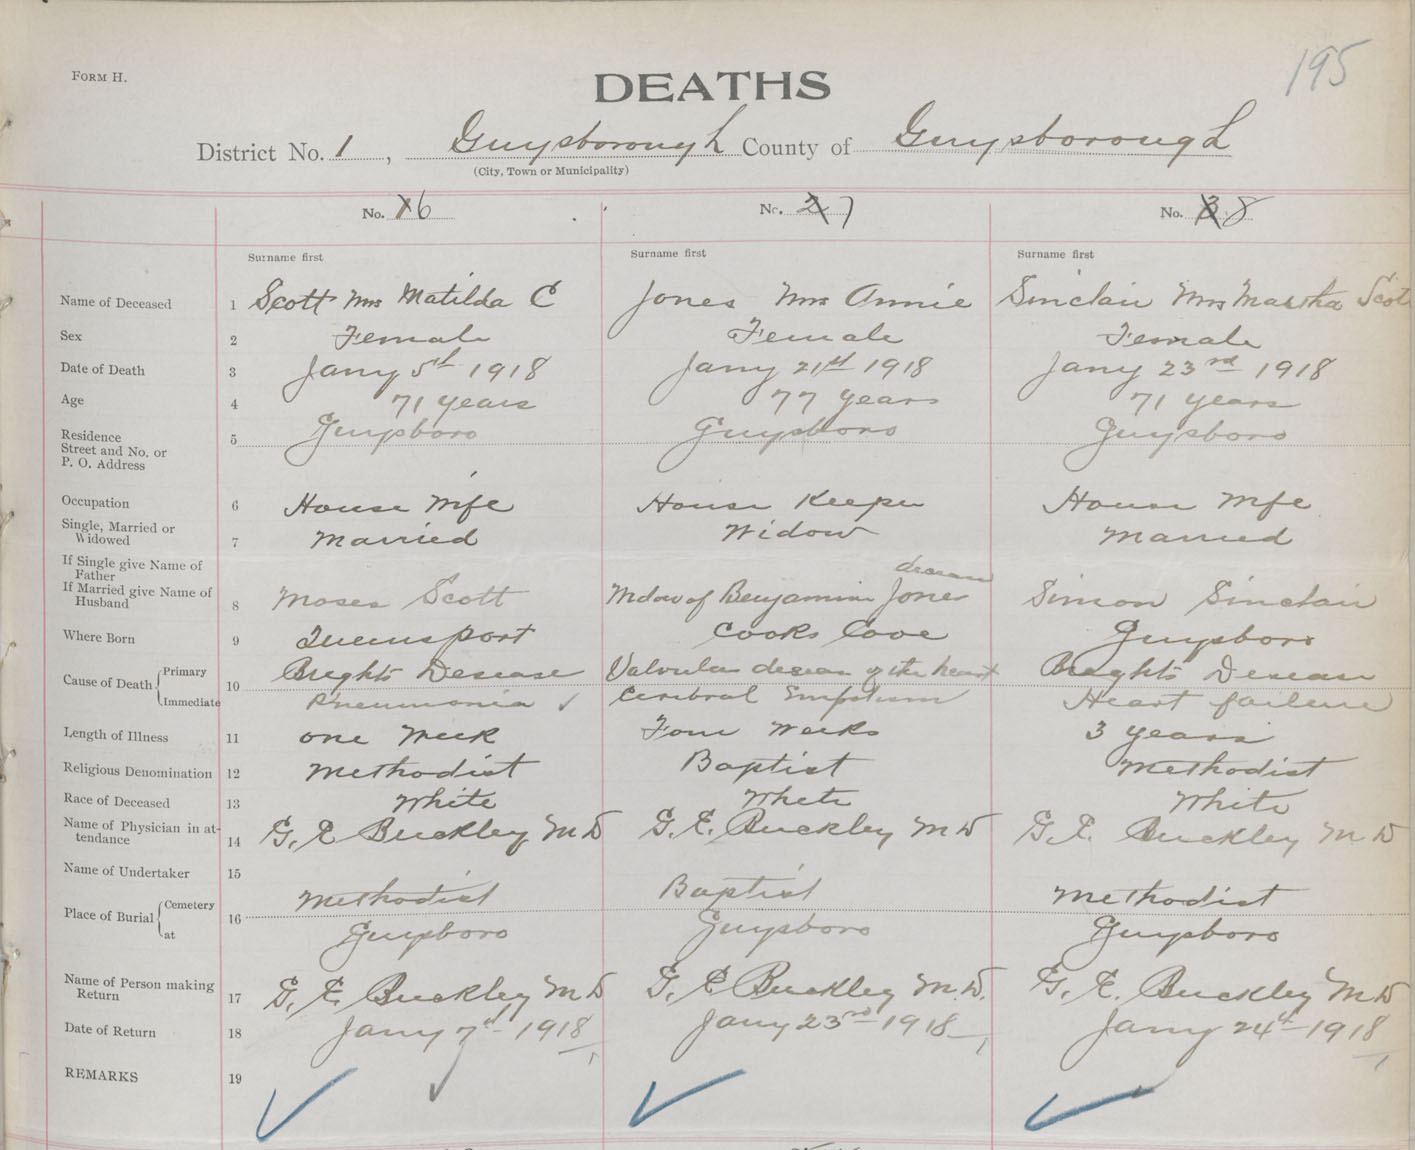 195
FORM H.
DEATHS
District No. 1, Guysborough County of Guysborough
(City, Town or Municipality)
No. 1 6 No. 2 7 No. 3 8
Surname first Surname first Surname first
Name of Deceased 1 Scott Mrs Matilda C Jones Mrs Annie Sinclair Mrs Martha Scot
Sex 2 Female Female Female
Date of Death 3 Jany 5th 1918 Jany 21st 1918 Jany 23rd 1918
Age 4 71 years 77 years 71 years
Residence
Street and No. or
P. O. Address 5 Guysboro Guysboro Guysboro
Occupation 6 House Wife House Keeper House Wife
Single, Married or
Widowed 7 Married Widow Married
If Single give Name of
Father
If Married give Name of
Husband 8 Moses Scott Widow of Benjamin Jones Simon Sinclair
Where Born 9 Queensport Cooks Cove Guysboro
Cause of Death 10 Primary Brights Desease Valvular desease of the heart Brights Desease
Immediate Pneumonia ✓ Cerebral Heart failure
Length of Illness 11 one Week Four Weeks 3 years
Religious Denomination 12 Methodist Baptist Methodist
Race of Deceased 13 White White White
Name of Physician in at-
tendance 14 G. E Buckley MD G. E. Buckley MD G. E. Buckley MD
Name of Undertaker 15
Place of Burial 16 Cemetery Methodist Baptist Methodist
at Guysboro Guysboro Guysboro
Name of Person making
Return 17 G. E. Buckley MD G. E Buckley M.D. G. E. Buckley MD
Date of Return 18 Jany 7th 1918 Jany 23rd 1918 Jany 24th 1918
REMARKS 19